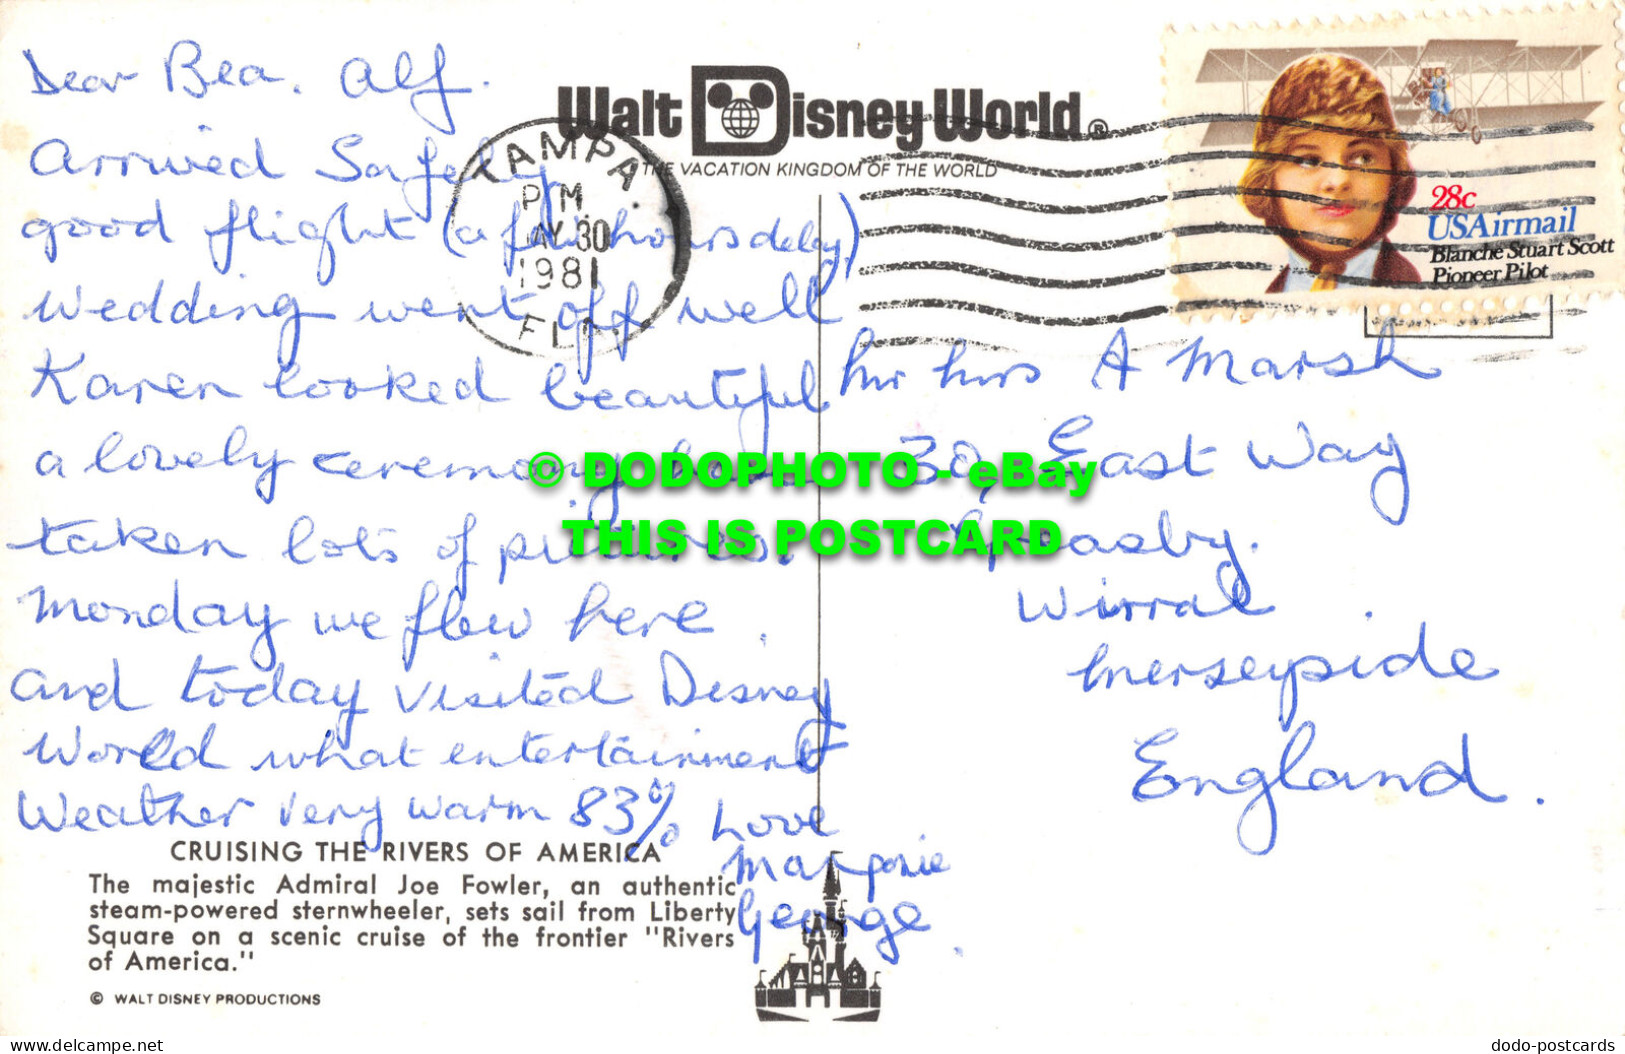 Dear Bea. Alf.
Arrived Safely
good flight (a few hours delay)
wedding went off well
Karen looked beautiful
a lovely ceremony have
taken lots of pictures.
Monday we flew here.
and today visited Disney
World what entertainment
Weather very warm 83% Love
Marjorie
George.
Walt Disney World®
THE VACATION KINGDOM OF THE WORLD
TAMPA
PM
MAY 30
1981
FLA.
28c
USAirmail
Blanche Stuart Scott
Pioneer Pilot
Mr Mrs A Marsh
30, East Way
Greasby.
Wirral.
Merseyside
England.
© DODOPHOTO - eBay
THIS IS POSTCARD
CRUISING THE RIVERS OF AMERICA
The majestic Admiral Joe Fowler, an authentic
steam-powered sternwheeler, sets sail from Liberty
Square on a scenic cruise of the frontier "Rivers
of America."
© WALT DISNEY PRODUCTIONS
delcampe.net
dodo-postcards